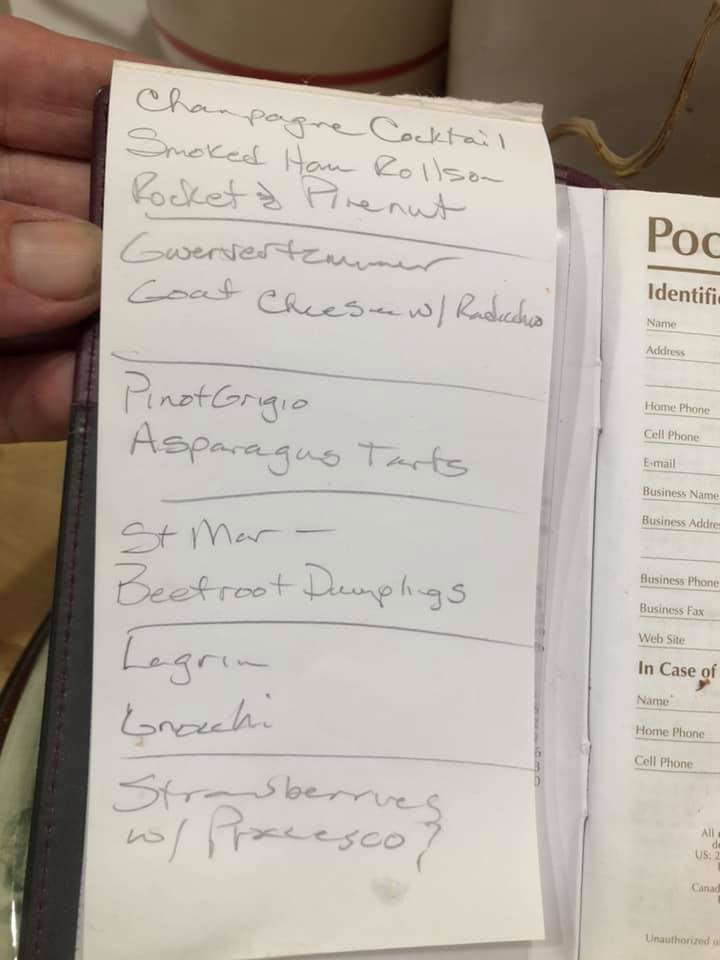 Champagne Cocktail
Smoked Ham Rolls on
Rocket & Pinenut
Gwervertzmumer
Goat Cheese w/ Radicchio
Pinot Grigio
Asparagus Tarts
St Mar -
Beetroot Dumplings
Lagrin
Gnocchi
Strawberries
w/ Proccesco?
Poc
Identifi
Name
Address
Home Phone
Cell Phone
E-mail
Business Name
Business Addre
Business Phone
Business Fax
Web Site
In Case of
Name
Home Phone
Cell Phone
All
US: 2
Canad
Unauthorized u